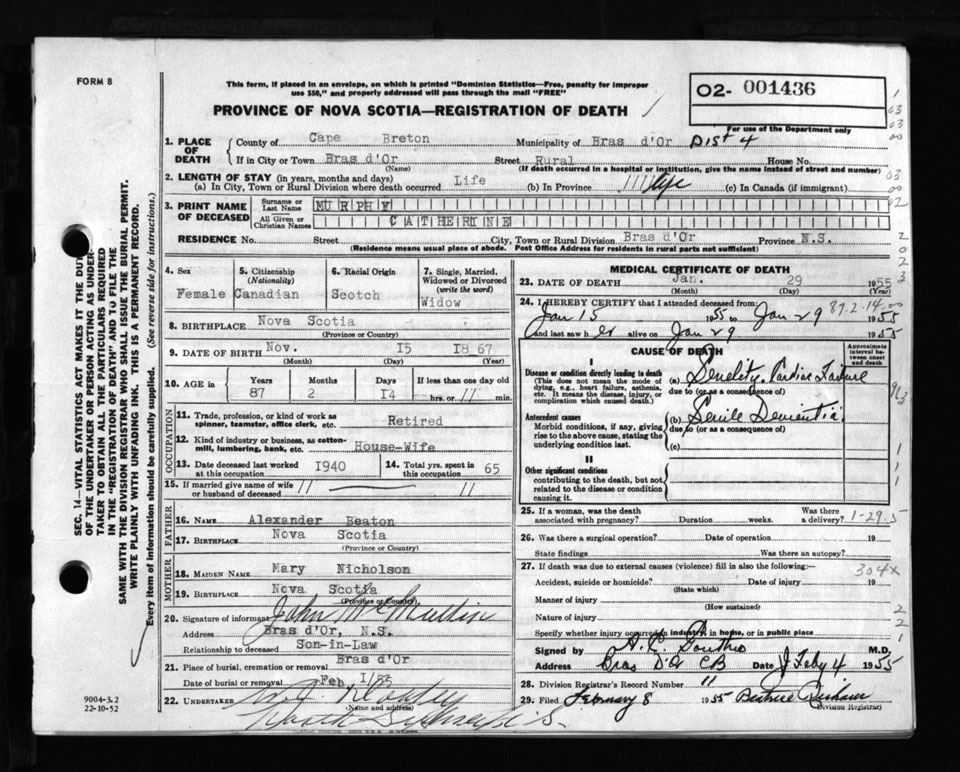 FORM 8
This form, if placed in an envelope, on which is printed "Dominion Statistics—Free, penalty for improper
use $50," and properly addressed will pass through the mail "FREE"
PROVINCE OF NOVA SCOTIA—REGISTRATION OF DEATH
O2- 001436
For use of the Department only
1. PLACE OF DEATH
County of Cape Breton Municipality of Bras d'Or Dist 4
If in City or Town Bras d'Or Street Rural House No.
(Name) (If death occurred in a hospital or institution, give the name instead of street and number)
2. LENGTH OF STAY (in years, months and days)
(a) In City, Town or Rural Division where death occurred Life (b) In Province Life (c) In Canada (if immigrant)
3. PRINT NAME OF DECEASED
Surname or Last Name MURPHY
All Given or Christian Names CATHERINE
RESIDENCE No. Street City, Town or Rural Division Bras d'Or Province N.S.
(Residence means usual place of abode. Post Office Address for residents in rural parts not sufficient)
4. Sex
Female
5. Citizenship (Nationality)
Canadian
6. Racial Origin
Scotch
7. Single, Married, Widowed or Divorced (write the word)
Widow
8. BIRTHPLACE Nova Scotia
(Province or Country)
9. DATE OF BIRTH Nov. 15 1867
(Month) (Day) (Year)
10. AGE in
Years Months Days If less than one day old
87 2 14 hrs. or min.
OCCUPATION
11. Trade, profession, or kind of work as
spinner, teamster, office clerk, etc. Retired
12. Kind of industry or business, as cotton-
mill, lumbering, bank, etc. House-Wife
13. Date deceased last worked
at this occupation 1940
14. Total yrs. spent in
this occupation 65
15. If married give name of wife
or husband of deceased
FATHER
16. NAME Alexander Beaton
17. BIRTHPLACE Nova Scotia
(Province or Country)
MOTHER
18. MAIDEN NAME Mary Nicholson
19. BIRTHPLACE Nova Scotia
(Province or Country)
20. Signature of informant John
Address Bras d'Or, N.S.
Relationship to deceased Son-in-Law
21. Place of burial, cremation or removal Bras d'Or
Date of burial or removal Feb 1/55
22. UNDERTAKER
(Name and address)
MEDICAL CERTIFICATE OF DEATH
23. DATE OF DEATH Jan. 29 1955
(Month) (Day) (Year)
24. I HEREBY CERTIFY that I attended deceased from: 87.2.14
Jan 15 1955 to Jan 29 1955
and last saw her alive on Jan 29 1955
CAUSE OF DEATH
Approximate interval between onset and death
I
Disease or condition directly leading to death
(This does not mean the mode of
dying, e.g., heart failure, asthenia,
etc. It means the disease, injury, or
complication which caused death.)
(a) Senility. Cardiac Failure
due to (or as a consequence of)
Antecedent causes
Morbid conditions, if any, giving
rise to the above cause, stating the
underlying condition last.
(b) Senile Dementia
due to (or as a consequence of)
(c)
II
Other significant conditions
contributing to the death, but not
related to the disease or condition
causing it.
25. If a woman, was the death
associated with pregnancy? Duration weeks. Was there a delivery? 1-29.5
26. Was there a surgical operation? Date of operation 19
State findings Was there an autopsy?
27. If death was due to external causes (violence) fill in also the following: 304X
Accident, suicide or homicide? Date of injury 19
(State which)
Manner of injury
(How sustained)
Nature of injury
Specify whether injury occurred in industry, in home, or in public place
Signed by M.D.
Address Bras D'Or CB Date Feby 4 1955
28. Division Registrar's Record Number 11
29. Filed February 8 1955 Beatrice
(Division Registrar)
SEC. 14—VITAL STATISTICS ACT MAKES IT THE DUTY
OF THE UNDERTAKER OR PERSON ACTING AS UNDER-
TAKER TO OBTAIN ALL THE PARTICULARS REQUIRED
IN THE "REGISTRATION OF DEATH" AND TO FILE THE
SAME WITH THE DIVISION REGISTRAR WHO SHALL ISSUE THE BURIAL PERMIT.
WRITE PLAINLY WITH UNFADING INK. THIS IS A PERMANENT RECORD.
Every item of information should be carefully supplied. (See reverse side for instructions.)
9004-3.2
22-10-52